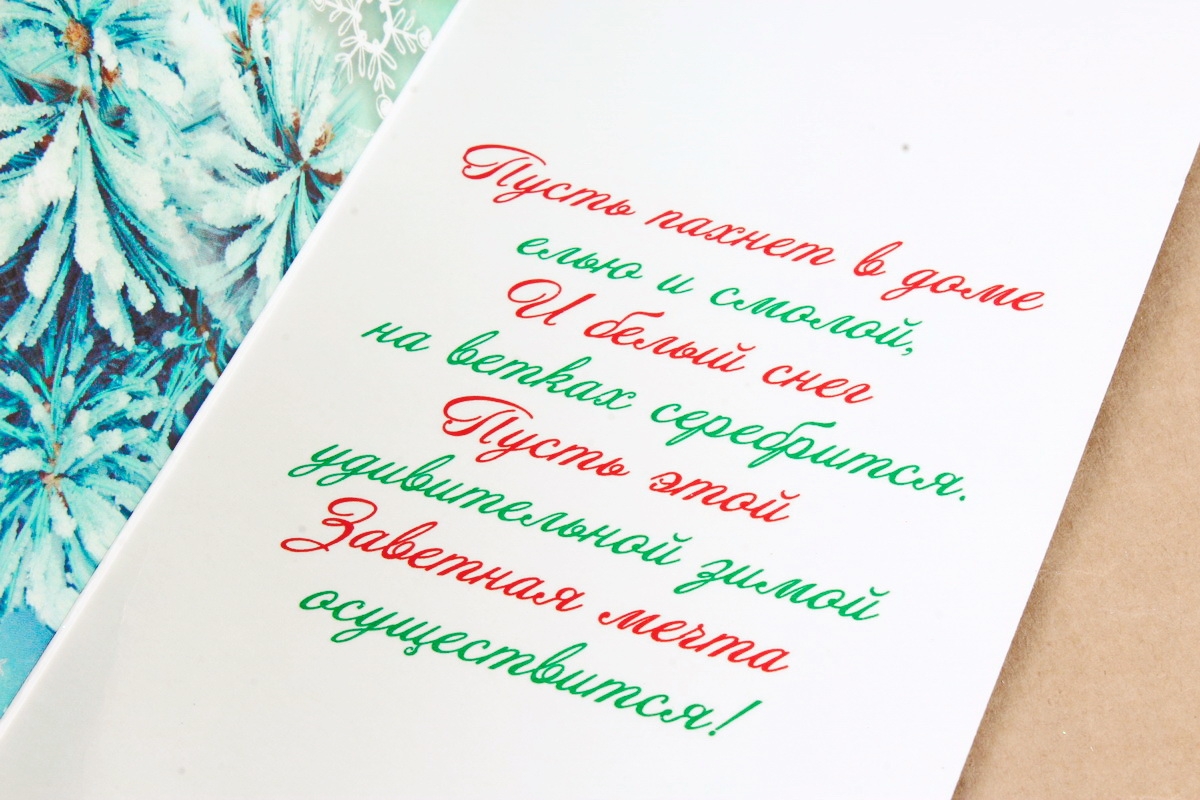 Пусть пахнет в доме
елью и смолой,
И белый снег
на ветках серебрится.
Пусть этой
удивительной зимой
Заветная мечта
осуществится!